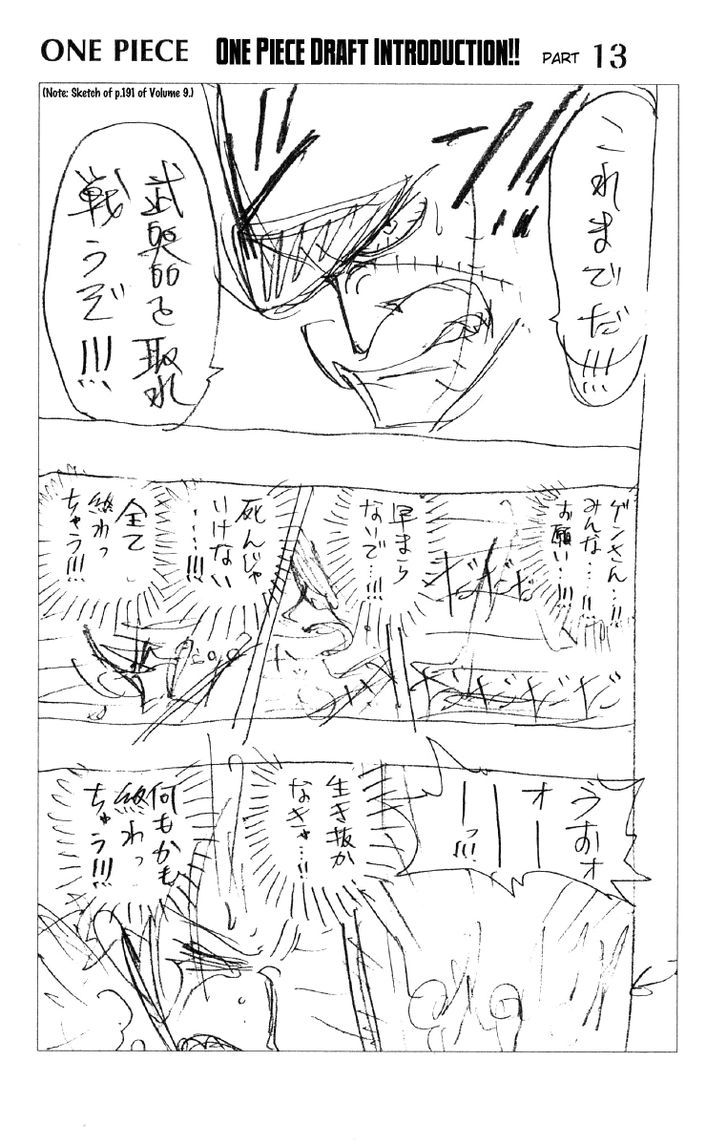 ONE PIECE ONE PIECE DRAFT INTRODUCTION!! PART 13
(Note: Sketch of p.191 of Volume 9.)
これまでだ!!!
武器を取れ
戦うぞ!!!
ゲンさん…!!
みんな…!!
お願い…!!
早まら
ないで…!!!
死んじゃ
いけない
……!!!
全て
終わっ
ちゃう!!!
うおォ
オー
ー
ーっ!!!
生き抜か
なきゃ…!!
何もかも
終わっ
ちゃう!!!